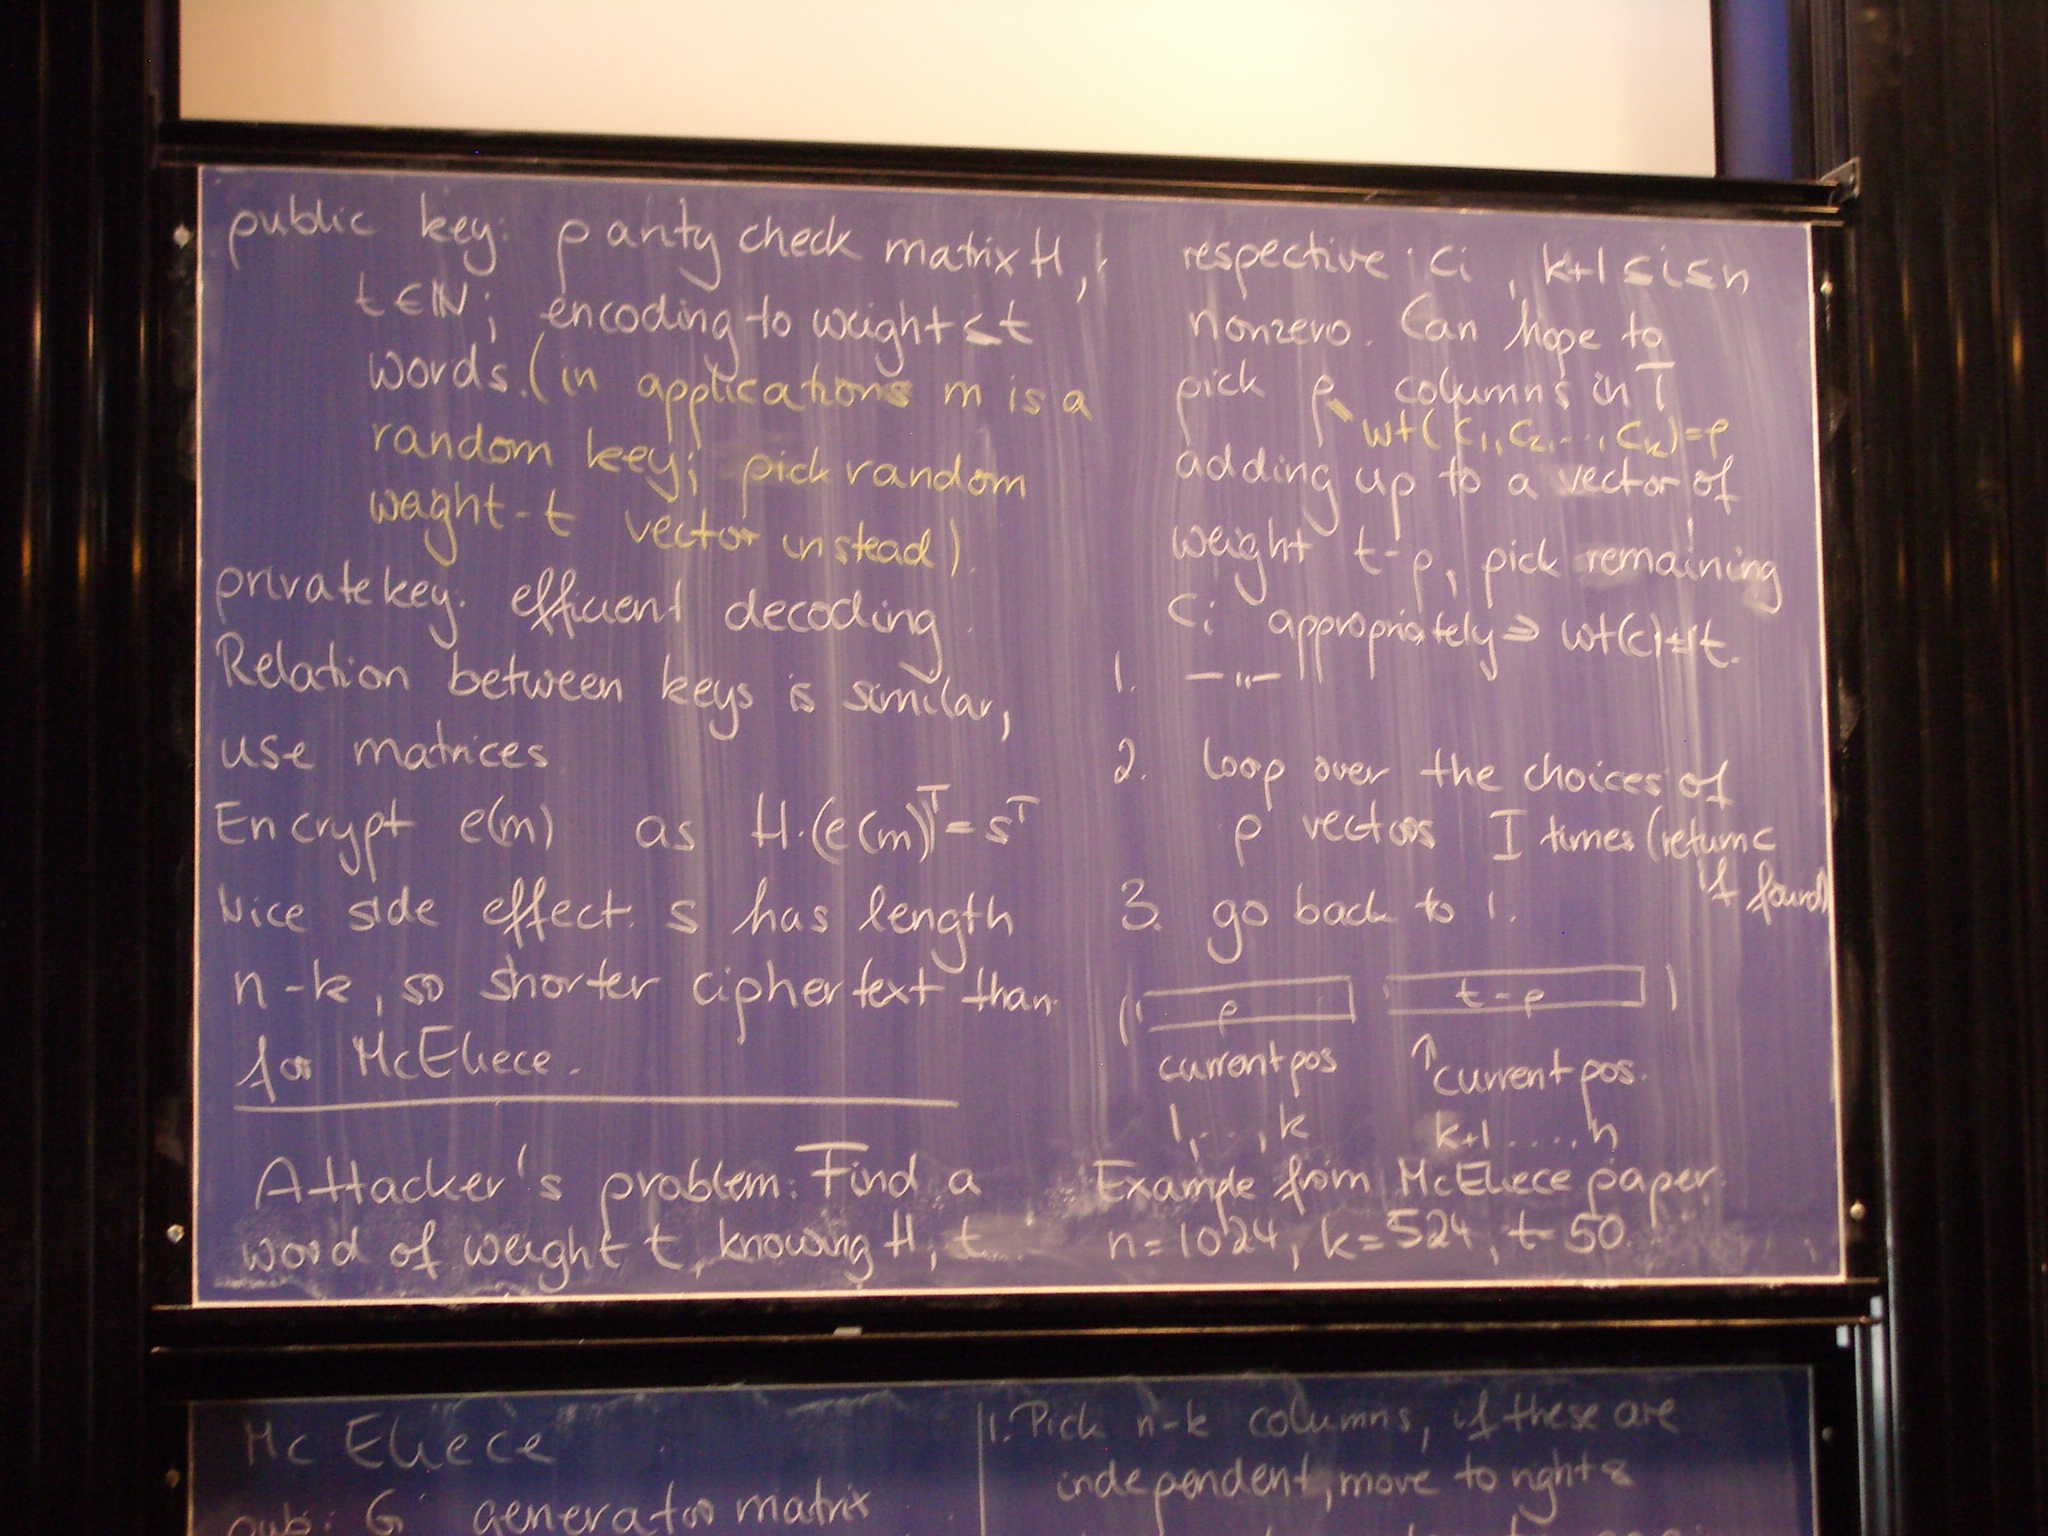 public key: parity check matrix H,
t ∈ ℕ; encoding to weight ≤ t
words. (in applications m is a
random key; pick random
waght-t vector instead).
private key: efficient decoding.
Relation between keys is similar,
use matrices
Encrypt e(m) as H·(e(m))^T = s^T
Nice side effect: s has length
n-k, so shorter ciphertext than
for McEliece.
Attacker's problem: Find a
word of weight t, knowing H, t
respective c_i, k+1 ≤ i ≤ n
nonzero. Can hope to
pick p columns in T
wt(c_1, c_2, ..., c_k) = p
adding up to a vector of
weight t-p, pick remaining
c_i appropriately ⇒ wt(c) = t.
1. —"—
2. loop over the choices of
p vectors I times (return c
if found)
3. go back to 1.
( p t-p )
current pos ↑ current pos.
1, ..., k k+1 .... n
Example from McEliece paper:
n=1024, k=524, t=50.
McEliece
pub: G generator matrix
1. Pick n-k columns, if these are
independent, move to right &